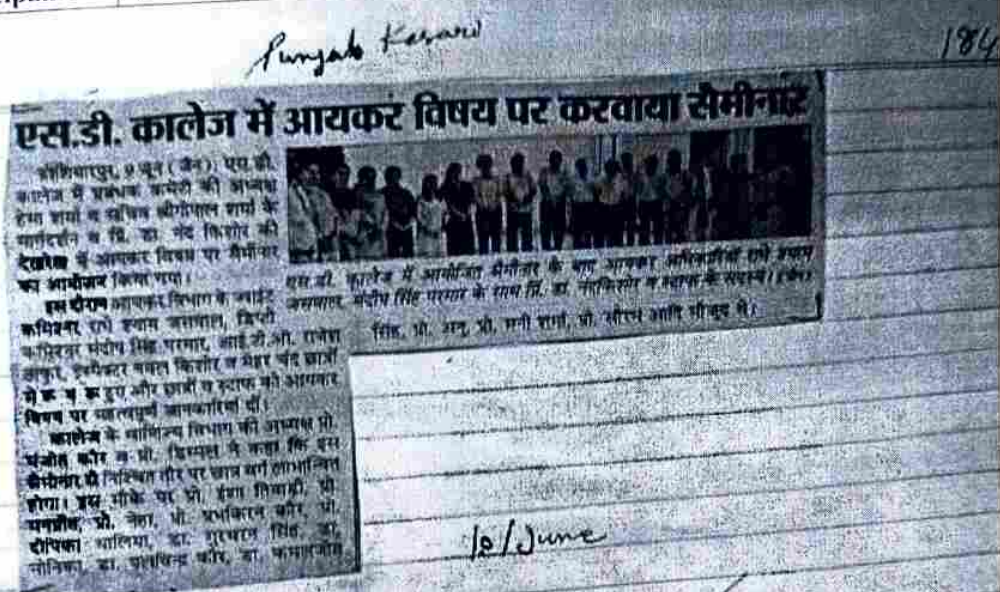 Punjab Kesari
184
एस.डी. कालेज में आयकर विषय पर करवाया सैमीनार
होशियारपुर, 9 जून (जैन): एस.डी.
कालेज में प्रबंधक कमेटी की अध्यक्ष
हेमा शर्मा व सचिव श्रीगोपाल शर्मा के
मार्गदर्शन व प्रि. डा. नंद किशोर की
देखरेख में आयकर विषय पर सैमीनार
का आयोजन किया गया।
इस दौरान आयकर विभाग के ज्वाइंट
कमिश्नर राधे श्याम जसवाल, डिप्टी
कमिश्नर मंदीप सिंह परमार, आई.टी.ओ. राजेश
ठाकुर, इंस्पैक्टर नवल किशोर व मेहर चंद छात्रों
से रू-ब-रू हुए और छात्रों व स्टाफ को आयकर
विषय पर महत्वपूर्ण जानकारियां दीं।
कालेज के वाणिज्य विभाग की अध्यक्ष प्रो.
कौर व प्रो. डिम्पल ने कहा कि इस
सैमीनार से निश्चित तौर पर छात्र वर्ग लाभान्वित
होगा। इस मौके पर प्रो. ईशा तिवाड़ी, प्रो.
मनप्रीत, प्रो. नेहा, प्रो. कौर, प्रो.
दीपिका वालिया, डा. गुरचरण सिंह, डा.
मोनिका, डा. पलविन्द्र कौर, डा. कमलजीत
एस.डी. कालेज में आयोजित सैमीनार के बाद आयकर अधिकारियों राधे श्याम
जसवाल, मंदीप सिंह परमार के साथ प्रि. डा. नंदकिशोर व स्टाफ के सदस्य। (जैन)
सिंह, प्रो. अनु, प्रो. शर्मा, प्रो. सौरभ आदि मौजूद थे।
10/June